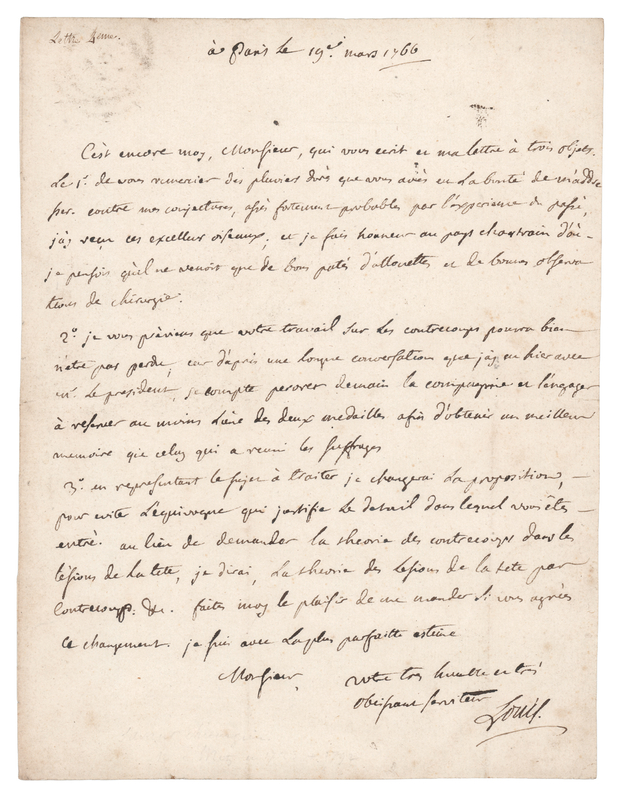 Lettre 4eme.
à Paris le 19e. mars 1766
C'est encore moy, Monsieur, qui vous ecrit et ma lettre à trois objets.
Le 1r. de vous remercier des pluviers dorés que vous aviés eu La bonté de m'addres
ser. contre mes conjectures, assés fortement probables par l'experience du passé,
j'ày reçu ces excellens oiseaux, et je fais honneur au pays chartrain d'où
je pensois qu'il ne venoit que de bons patés d'allouettes et de bonnes observa
tions de chirurgie.
2°. je vous préviens que votre travail sur Les contrecoups pourra bien
n'etre pas perdu, car d'après une longue conversation que j'ày eu hier avec
mr. Le president, je compte perorer demain la compagnie et l'engager
à reserver au moins L'une des deux medailles afin d'obtenir un meilleur
memoire que celuy qui a reuni les suffrages
3°. en representant le sujet à traiter je changerai La proposition,
pour eviter L'equivoque qui justifie Le detail dans lequel vous êtes
entré. au lieu de demander la theorie des contrecoups dans les
lésions de La tete, je dirai, La theorie des Lesions de la tete par
Contrecoups. &c. faites moy le plaisir de me mander si vous agréés
Ce changement. je suis avec La plus parfaitte estime
Monsieur,
votre tres humble et très
obeissant serviteur
Louis.